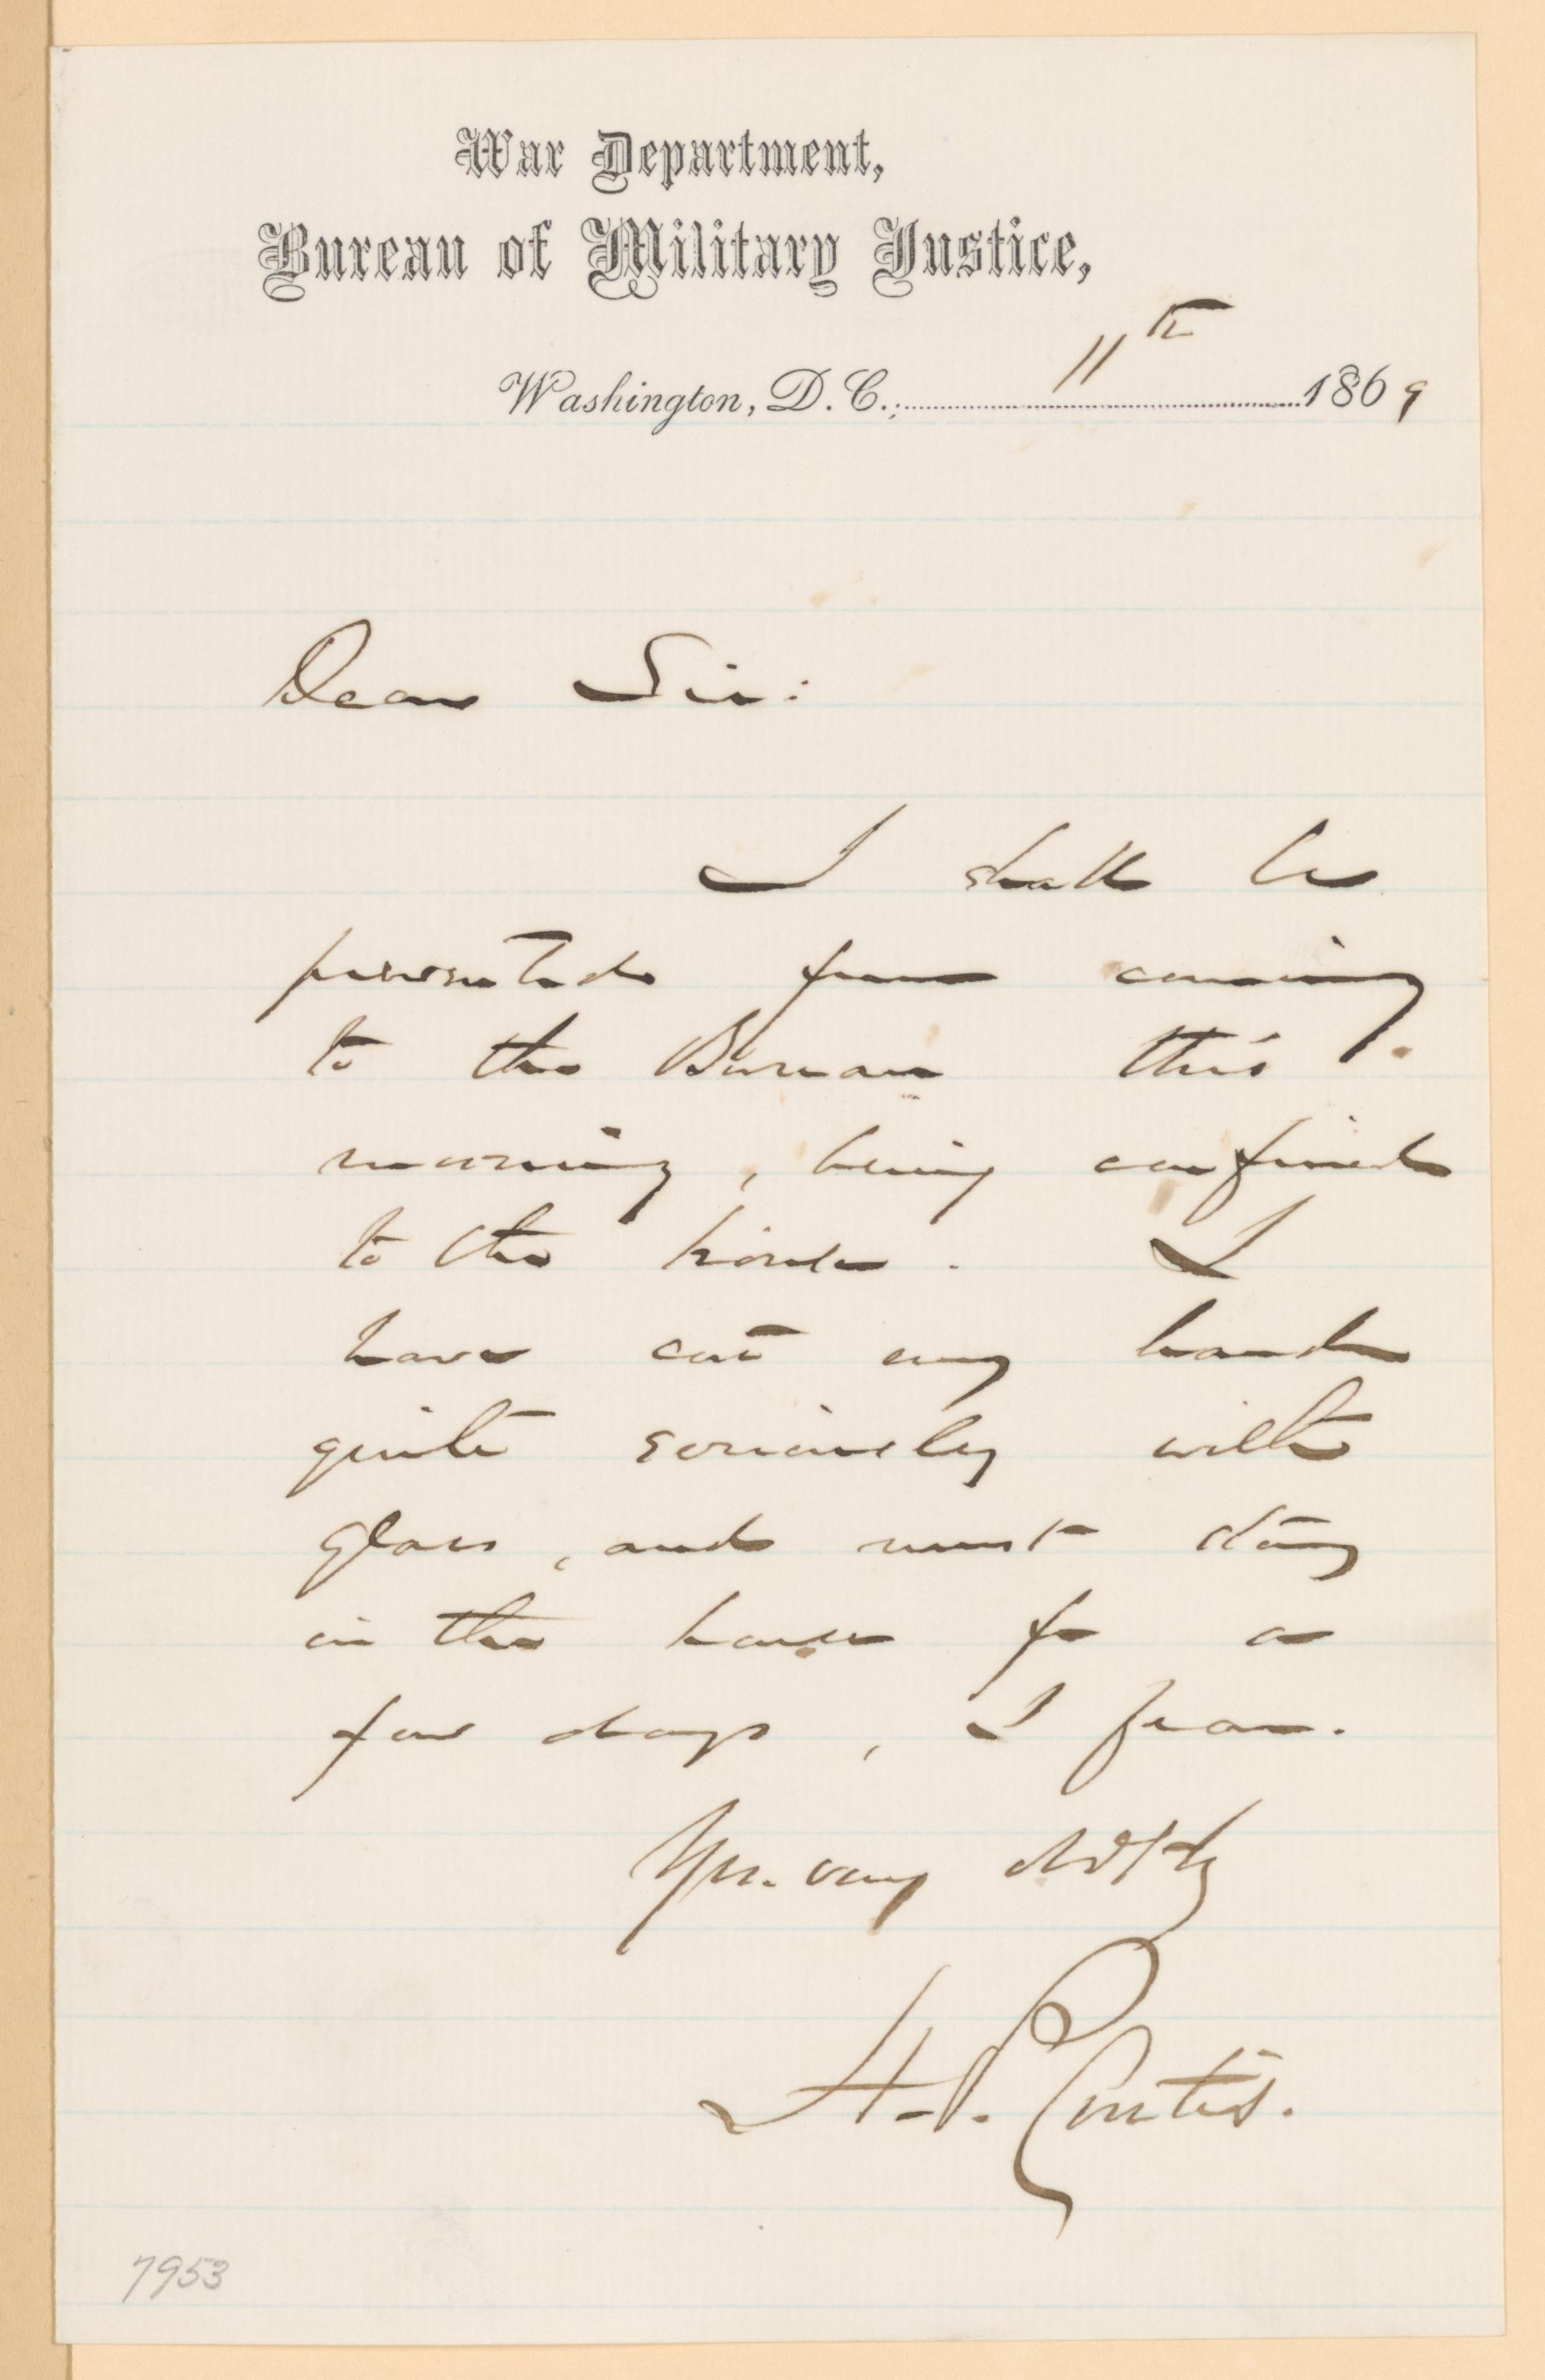 War Department,
Bureau of Military Justice,
Washington, D. C., 11th 1869
Dear Sir:
I shall be
prevented from coming
to the Bureau this
morning, being confined
to the house. I
have cut my hand
quite seriously with
glass, and must stay
in the house for a
few days, I fear.
Yrs. very
H. P. Curtis.
7953